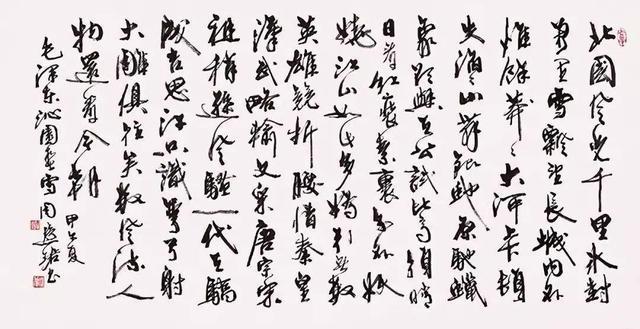 北國風光千里冰封
萬里雪飄望長城内外
惟餘莽々大河上下頓
失滔々山舞銀蛇原馳蠟
象欲與天公試比高須晴
日看紅裝素裹分外妖
嬈江山如此多嬌引無數
英雄競折腰惜秦皇
漢武略輸文采唐宗宋
祖稍遜風騷一代天驕
成吉思汗只識彎弓射
大雕俱往矣數風流人
物還看今朝 甲午夏
毛澤東沁園春雪周書